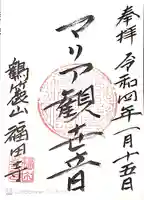 奉拝 令和四年一月十五日
マリア観世音
鶴嶺山 福田寺